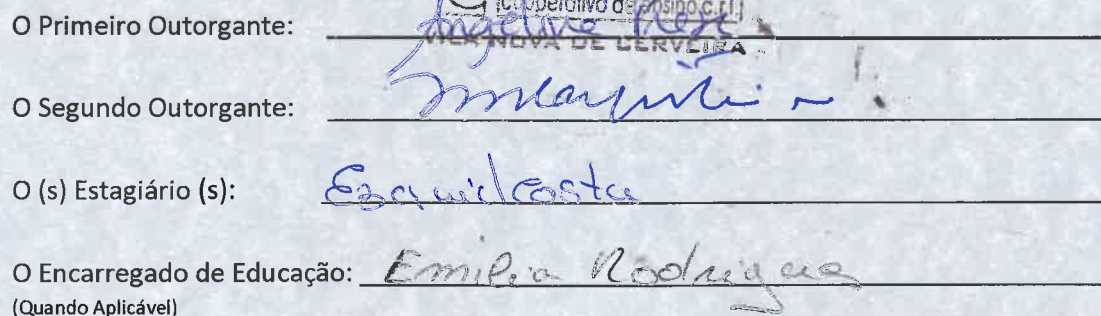 cooperativa de ensino c.r.l.
O Primeiro Outorgante: Angelina
VILA NOVA DE CERVEIRA
O Segundo Outorgante:
O (s) Estagiário (s): Ezequiel Costa
O Encarregado de Educação: Emília Rodrigues
(Quando Aplicável)